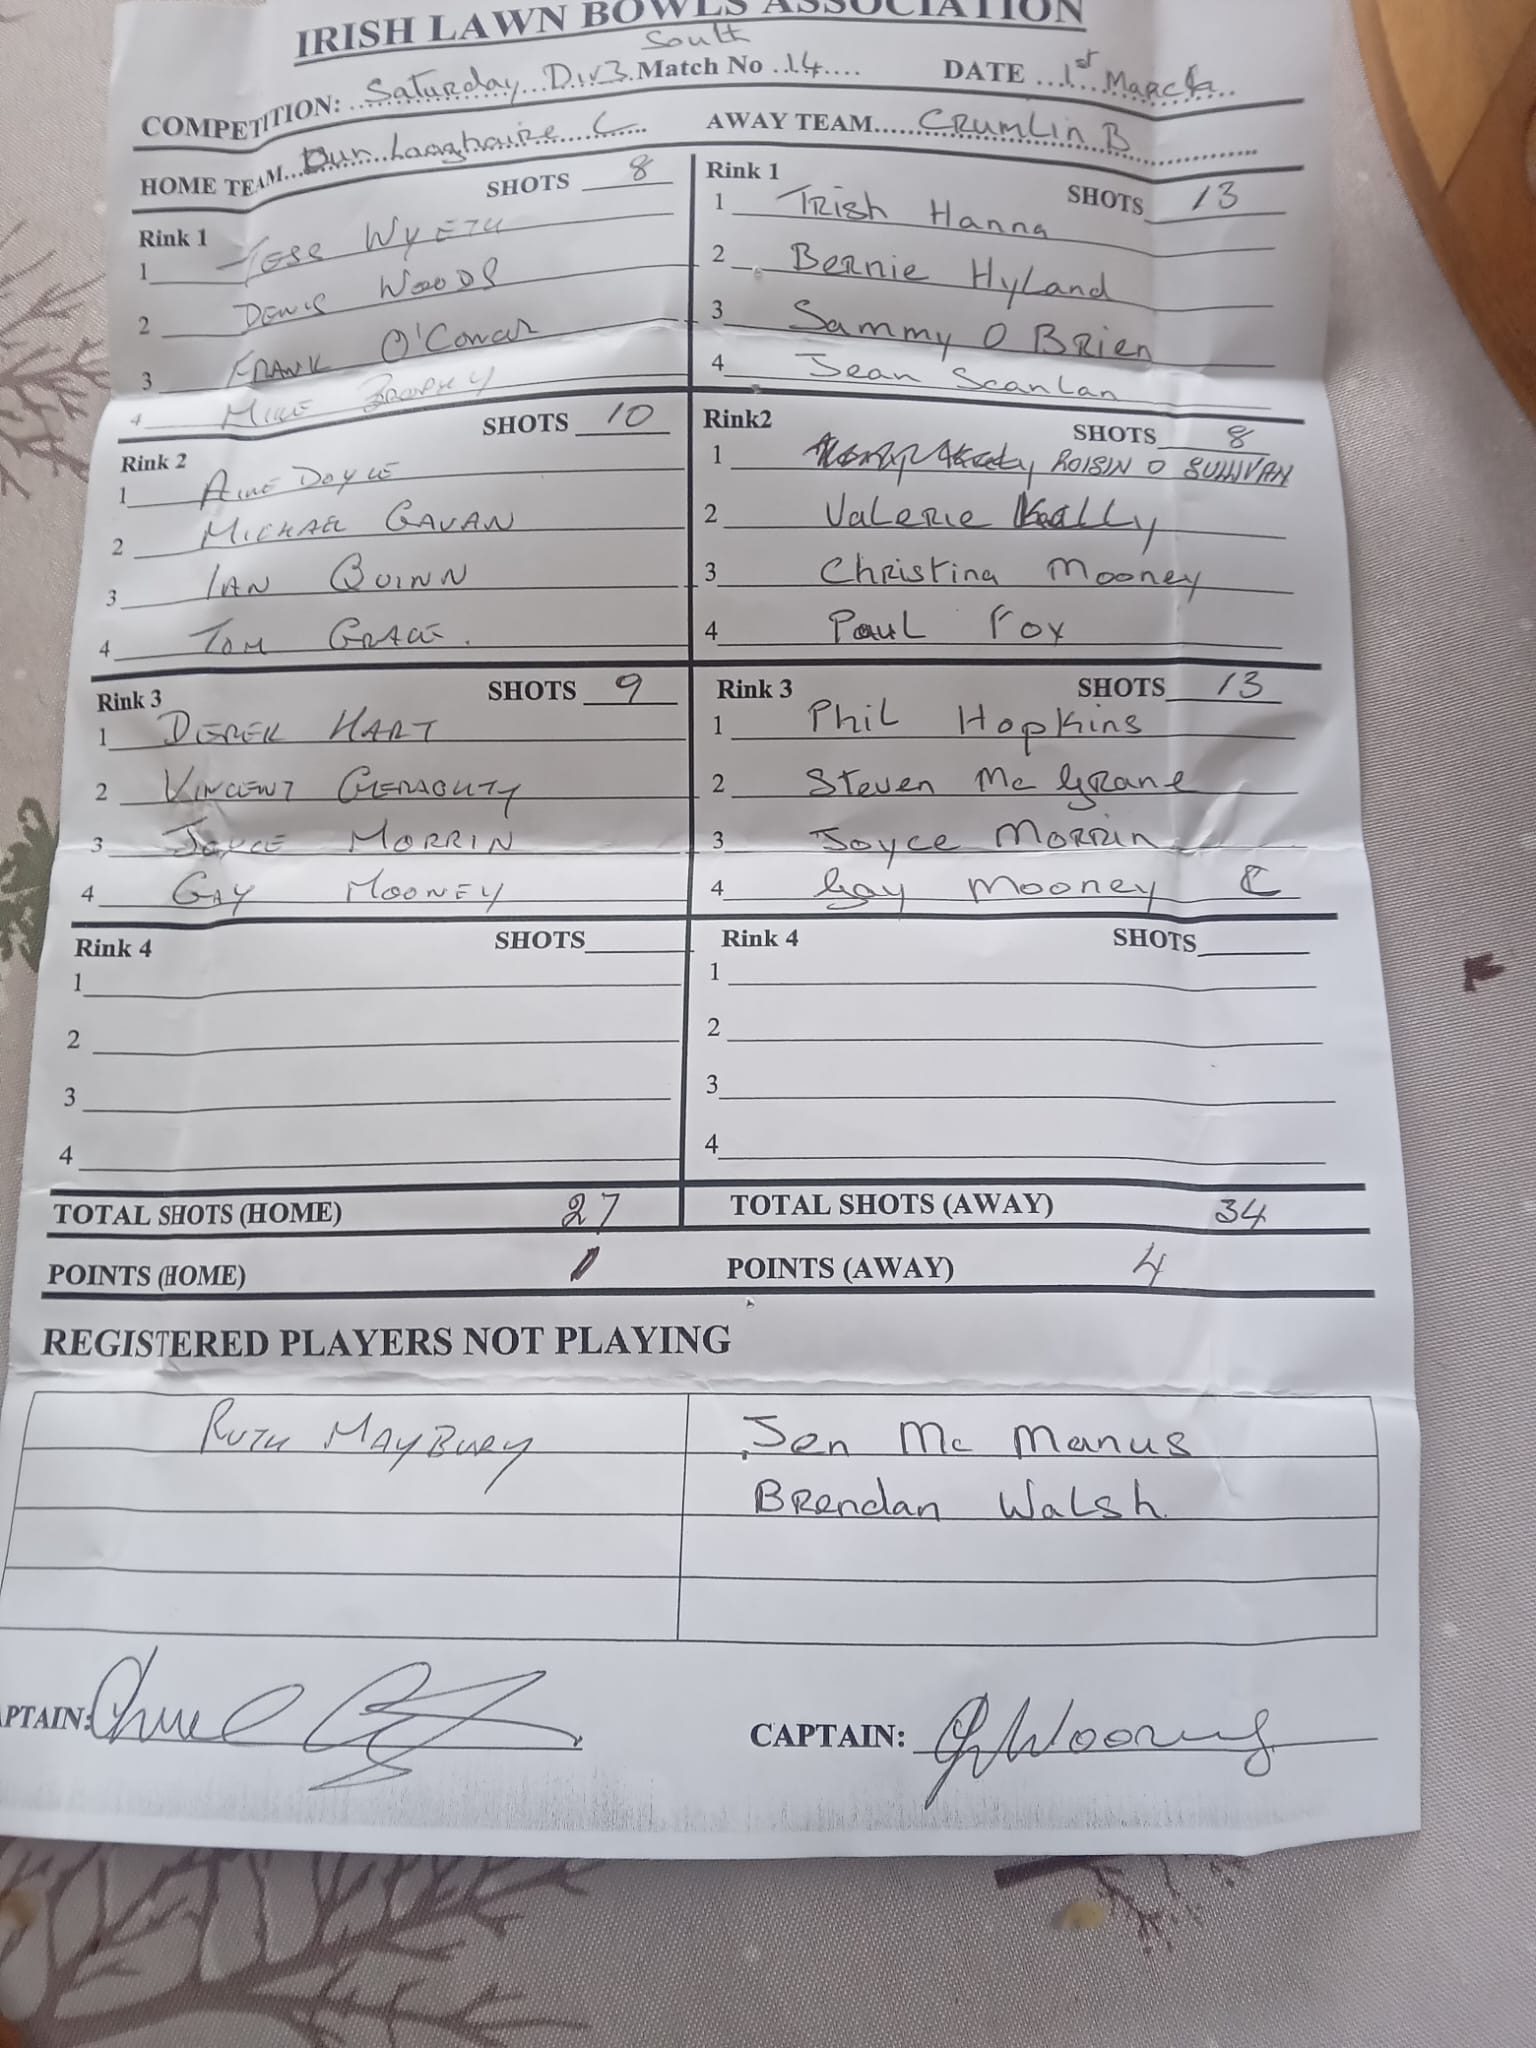 IRISH LAWN BOWLS ASSOCIATION
South
COMPETITION: Saturday Div 3. Match No 14 DATE 1st March
HOME TEAM Dun Laoghaire C AWAY TEAM CRUMLIN B
Rink 1 SHOTS 8
1 Tess WYETH
2 DENIS WOODS
3 FRANK O'Conor
4 MIKE BROPHY
Rink 1 SHOTS 13
1 TRish Hanna
2 BeRnie HyLand
3 Sammy O BRien
4 Jean ScanLan
Rink 2 SHOTS 10
1 AINE DOYLE
2 MICHAEL GAVAN
3 IAN QUINN
4 TOM GRACE.
Rink2 SHOTS 8
1 ROISIN O SULLIVAN
2 VaLeRie Kelly
3 ChRistina Mooney
4 PauL Fox
Rink 3 SHOTS 9
1 DEREK HART
2 VINCENT GERAGHTY
3 JOYCE MORRIN
4 GAY MOONEY
Rink 3 SHOTS 13
1 PhiL Hopkins
2 Steven Mc GRane
3 Joyce MoRRin
4 Gay Mooney C
Rink 4 SHOTS
1
2
3
4
Rink 4 SHOTS
1
2
3
4
TOTAL SHOTS (HOME) 27 TOTAL SHOTS (AWAY) 34
POINTS (HOME) POINTS (AWAY) 4
REGISTERED PLAYERS NOT PLAYING
RUTH MAYBURY Jen Mc Manus
BRendan WaLsh.
CAPTAIN: